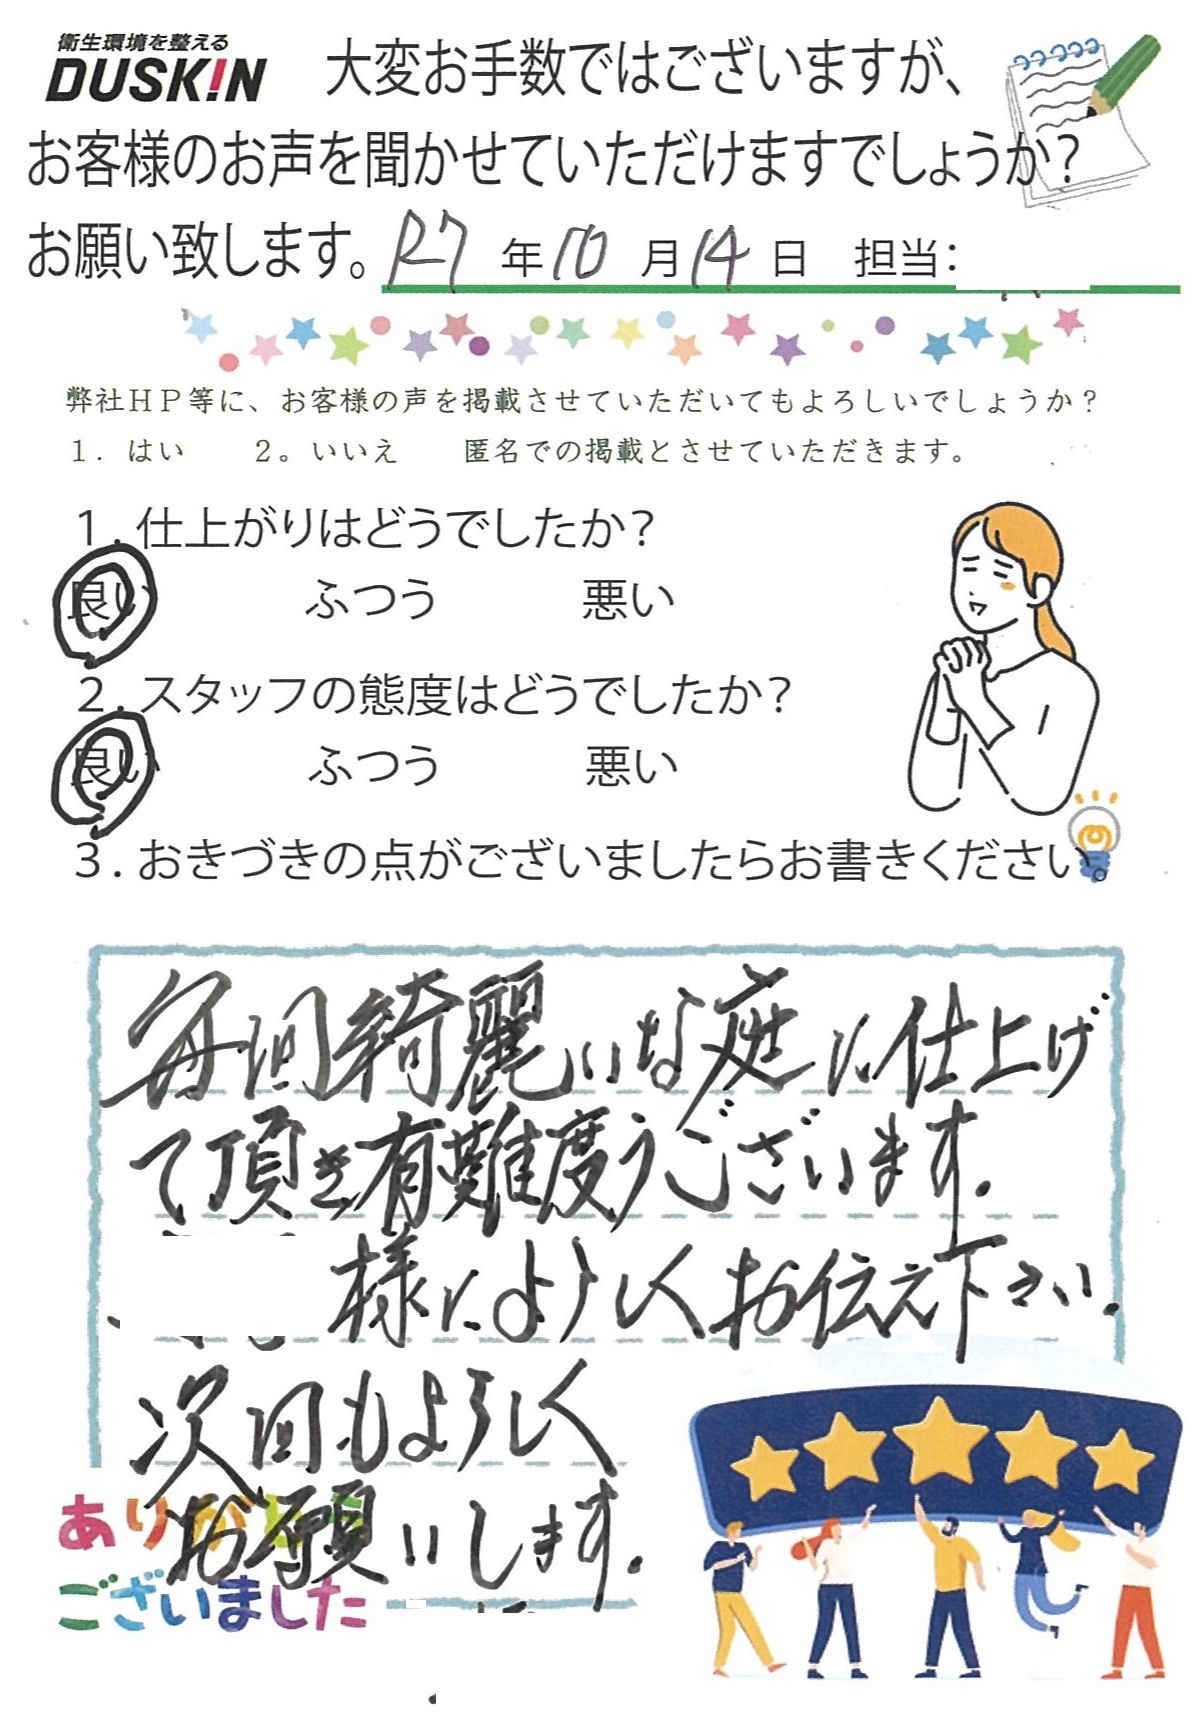 衛生環境を整える
DUSKIN
大変お手数ではございますが、
お客様のお声を聞かせていただけますでしょうか？
お願い致します。R7年10月14日 担当：
弊社HP等に、お客様の声を掲載させていただいてもよろしいでしょうか？
1．はい 2。いいえ 匿名での掲載とさせていただきます。
1．仕上がりはどうでしたか？
良い ふつう 悪い
2．スタッフの態度はどうでしたか？
良い ふつう 悪い
3．おきづきの点がございましたらお書きください。
毎回綺麗いな庭に仕上げ
て頂き有難度うございます。
様によろしくお伝え下さい。
次回もよろしく
お願いします。
ありがとう
ございました